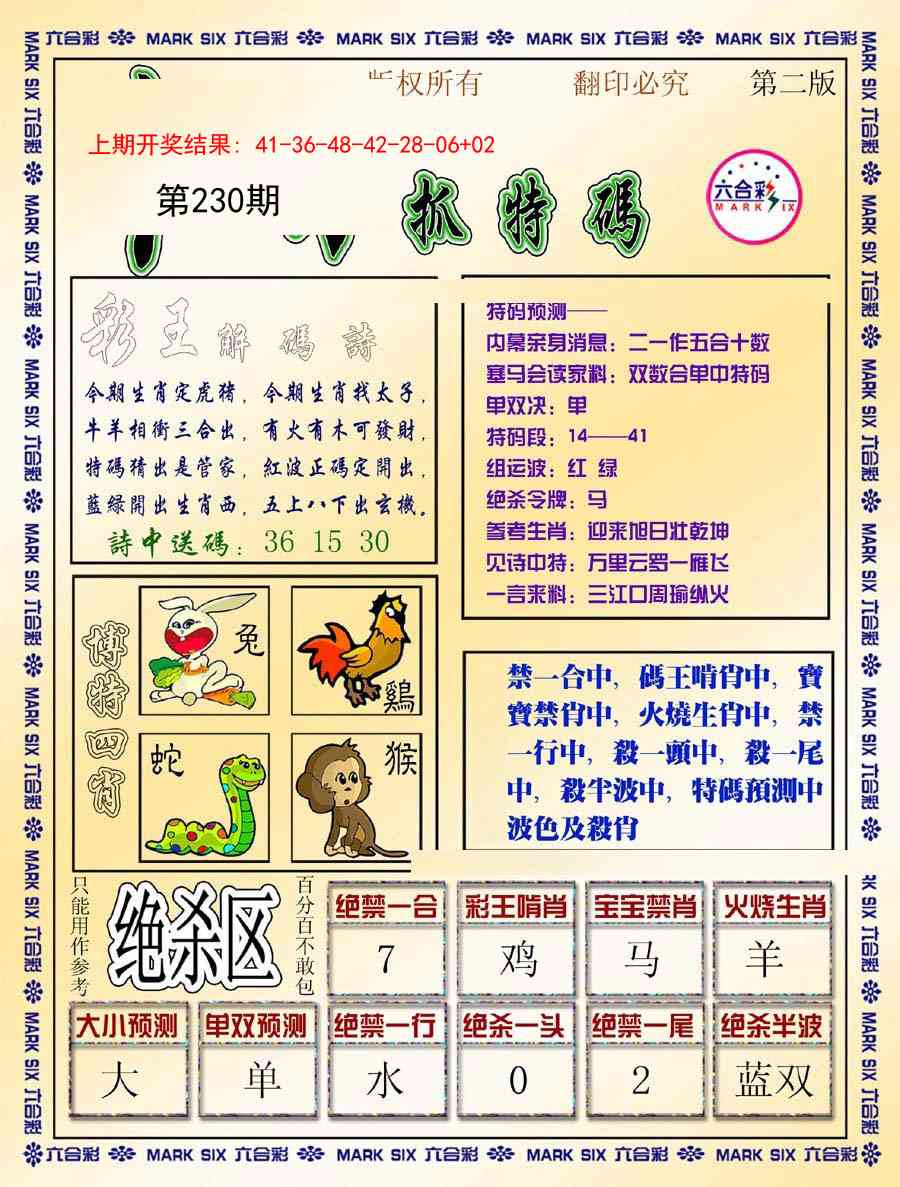 六合彩 MARK SIX 六合彩 MARK SIX 六合彩 MARK SIX 六合彩 MARK SIX 六合彩
权所有 翻印必究 第二版
上期开奖结果：41-36-48-42-28-06+02
第230期
抓特碼
六合彩
MARK SIX
彩王解碼詩
今期生肖定虎猪，今期生肖找太子，
牛羊相衝三合出，有火有木可發財，
特碼猜出是管家，紅波正碼定開出，
藍綠開出生肖西，五上八下出玄機。
詩中送碼：36 15 30
特码预测——
内幕亲身消息：二一作五合十数
塞马会读家料：双数合单中特码
单双决：单
特码段：14——41
组运波：红 绿
绝杀令牌：马
参考生肖：迎来旭日壮乾坤
见诗中特：万里云罗一雁飞
一言来料：三江口周瑜纵火
博特四肖
兔
鷄
蛇
猴
禁一合中，碼王啃肖中，寶
寶禁肖中，火燒生肖中，禁
一行中，殺一頭中，殺一尾
中，殺半波中，特碼預測中
波色及殺肖
只能用作参考
绝杀区
百分百不敢包
绝禁一合 彩王啃肖 宝宝禁肖 火烧生肖
7 鸡 马 羊
大小预测 单双预测 绝禁一行 绝杀一头 绝禁一尾 绝杀半波
大 单 水 0 2 蓝双
六合彩 MARK SIX 六合彩 MARK SIX 六合彩 MARK SIX 六合彩 MARK SIX 六合彩